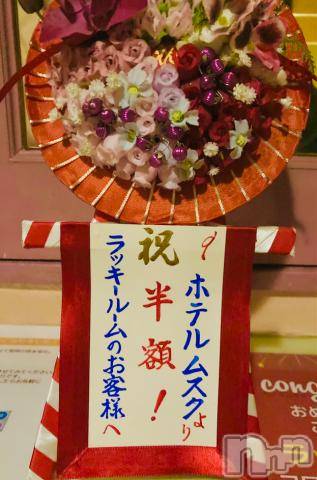 祝
半額!
ホテルムスクより
ラッキールームのお客様へ
cong
おめ